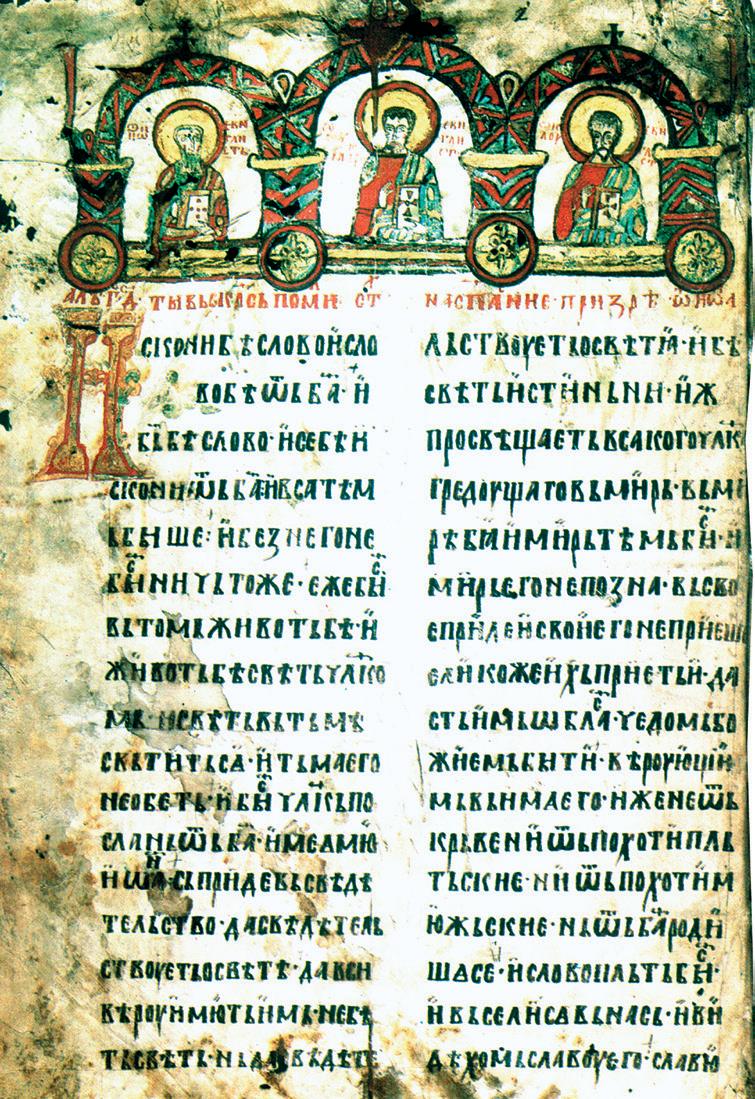 ИСКОНИ БѢ СЛОВО И СЛО
ВО БѢ ѾЬ БА · И
БЬ БѢ СЛОВО · И СЕ БѢ И
СКОНИ ѾЬ БА И ВСА ТѢМ
Ь БЫШЕ · И БЕЗ НЕГО НЕ
БЫ НИЧЬТОЖЕ · ЕЖЕ БЫ
ВЬ ТОМЬ ЖИВОТЬ БѢ · И
ЖИВОТЬ БѢ СВѢТЬ ЧЛКО
МЬ · И СВѢТЬ ВЬ ТЬМѢ
СВЬТИТЬ СА · И ТЬМА ЕГО
НЕ ОБЕТЬ · И БЫ ЧЛКЬ ПО
СЛАНЬ ѾЬ БА · ИМЕ ЛМЮ
ИѠАНЬ · СЬ ПРИДЕ ВЬ СВѢДѢ
ТЕЛЬСТВО · ДА СВѢДѢТЕЛЬ
СТВОУЕТЬ О СВѢТѢ · ДА ВСИ
ВѢРОУ ИМЮТЬ ИМЬ · НЕ БѢ
ТЬ СВѢТЬ · НЬ ДА СВѢДѢТЕ
ЛЬСТВОУЕТЬ О СВѢТѢ · И БѢ
СВѢТЬ ИСТИНЬНЫ · ИЖ
ПРОСВѢЩАЕТЬ ВСАКОГО ЧЛК
ГРЕДОУЩАГО ВЬ МИРЬ · ВЬ МИ
РѢ БѢ И МИРЬ ТѢМЬ БЫ · И
МИРЬ ЕГО НЕ ПОЗНА · ВЬ СВО
Е ПРИДЕ И СВОИ ЕГО НЕ ПРИЕШ
ЕЛИКО ЖЕ ИХЬ ПРИЕТЬ И · ДА
СТЬ ИМЬ ѠБЛА · ЧЕДОМЬ БО
ЖИЕМЬ БЫТИ · ВѢРОУЮЩИ
МЬ ВЬ ИМА ЕГО · ИЖЕ НЕ ѾЬ
КРЬВЕ НИ ѾЬ ПОХОТИ ПЛЬ
ТЬСКИЕ · НИ ѾЬ ПОХОТИ М
ЮЖЬСКИЕ · НЬ ѾЬ БА РОДИ
ШАСЕ · И СЛОВО ПЛЬТЬ БЫ ·
И ВЬСЕЛИ СА ВЬ НАСЬ · И ВИ
ДѢХОМЬ СЛАВОУ ЕГО · СЛАВЮ